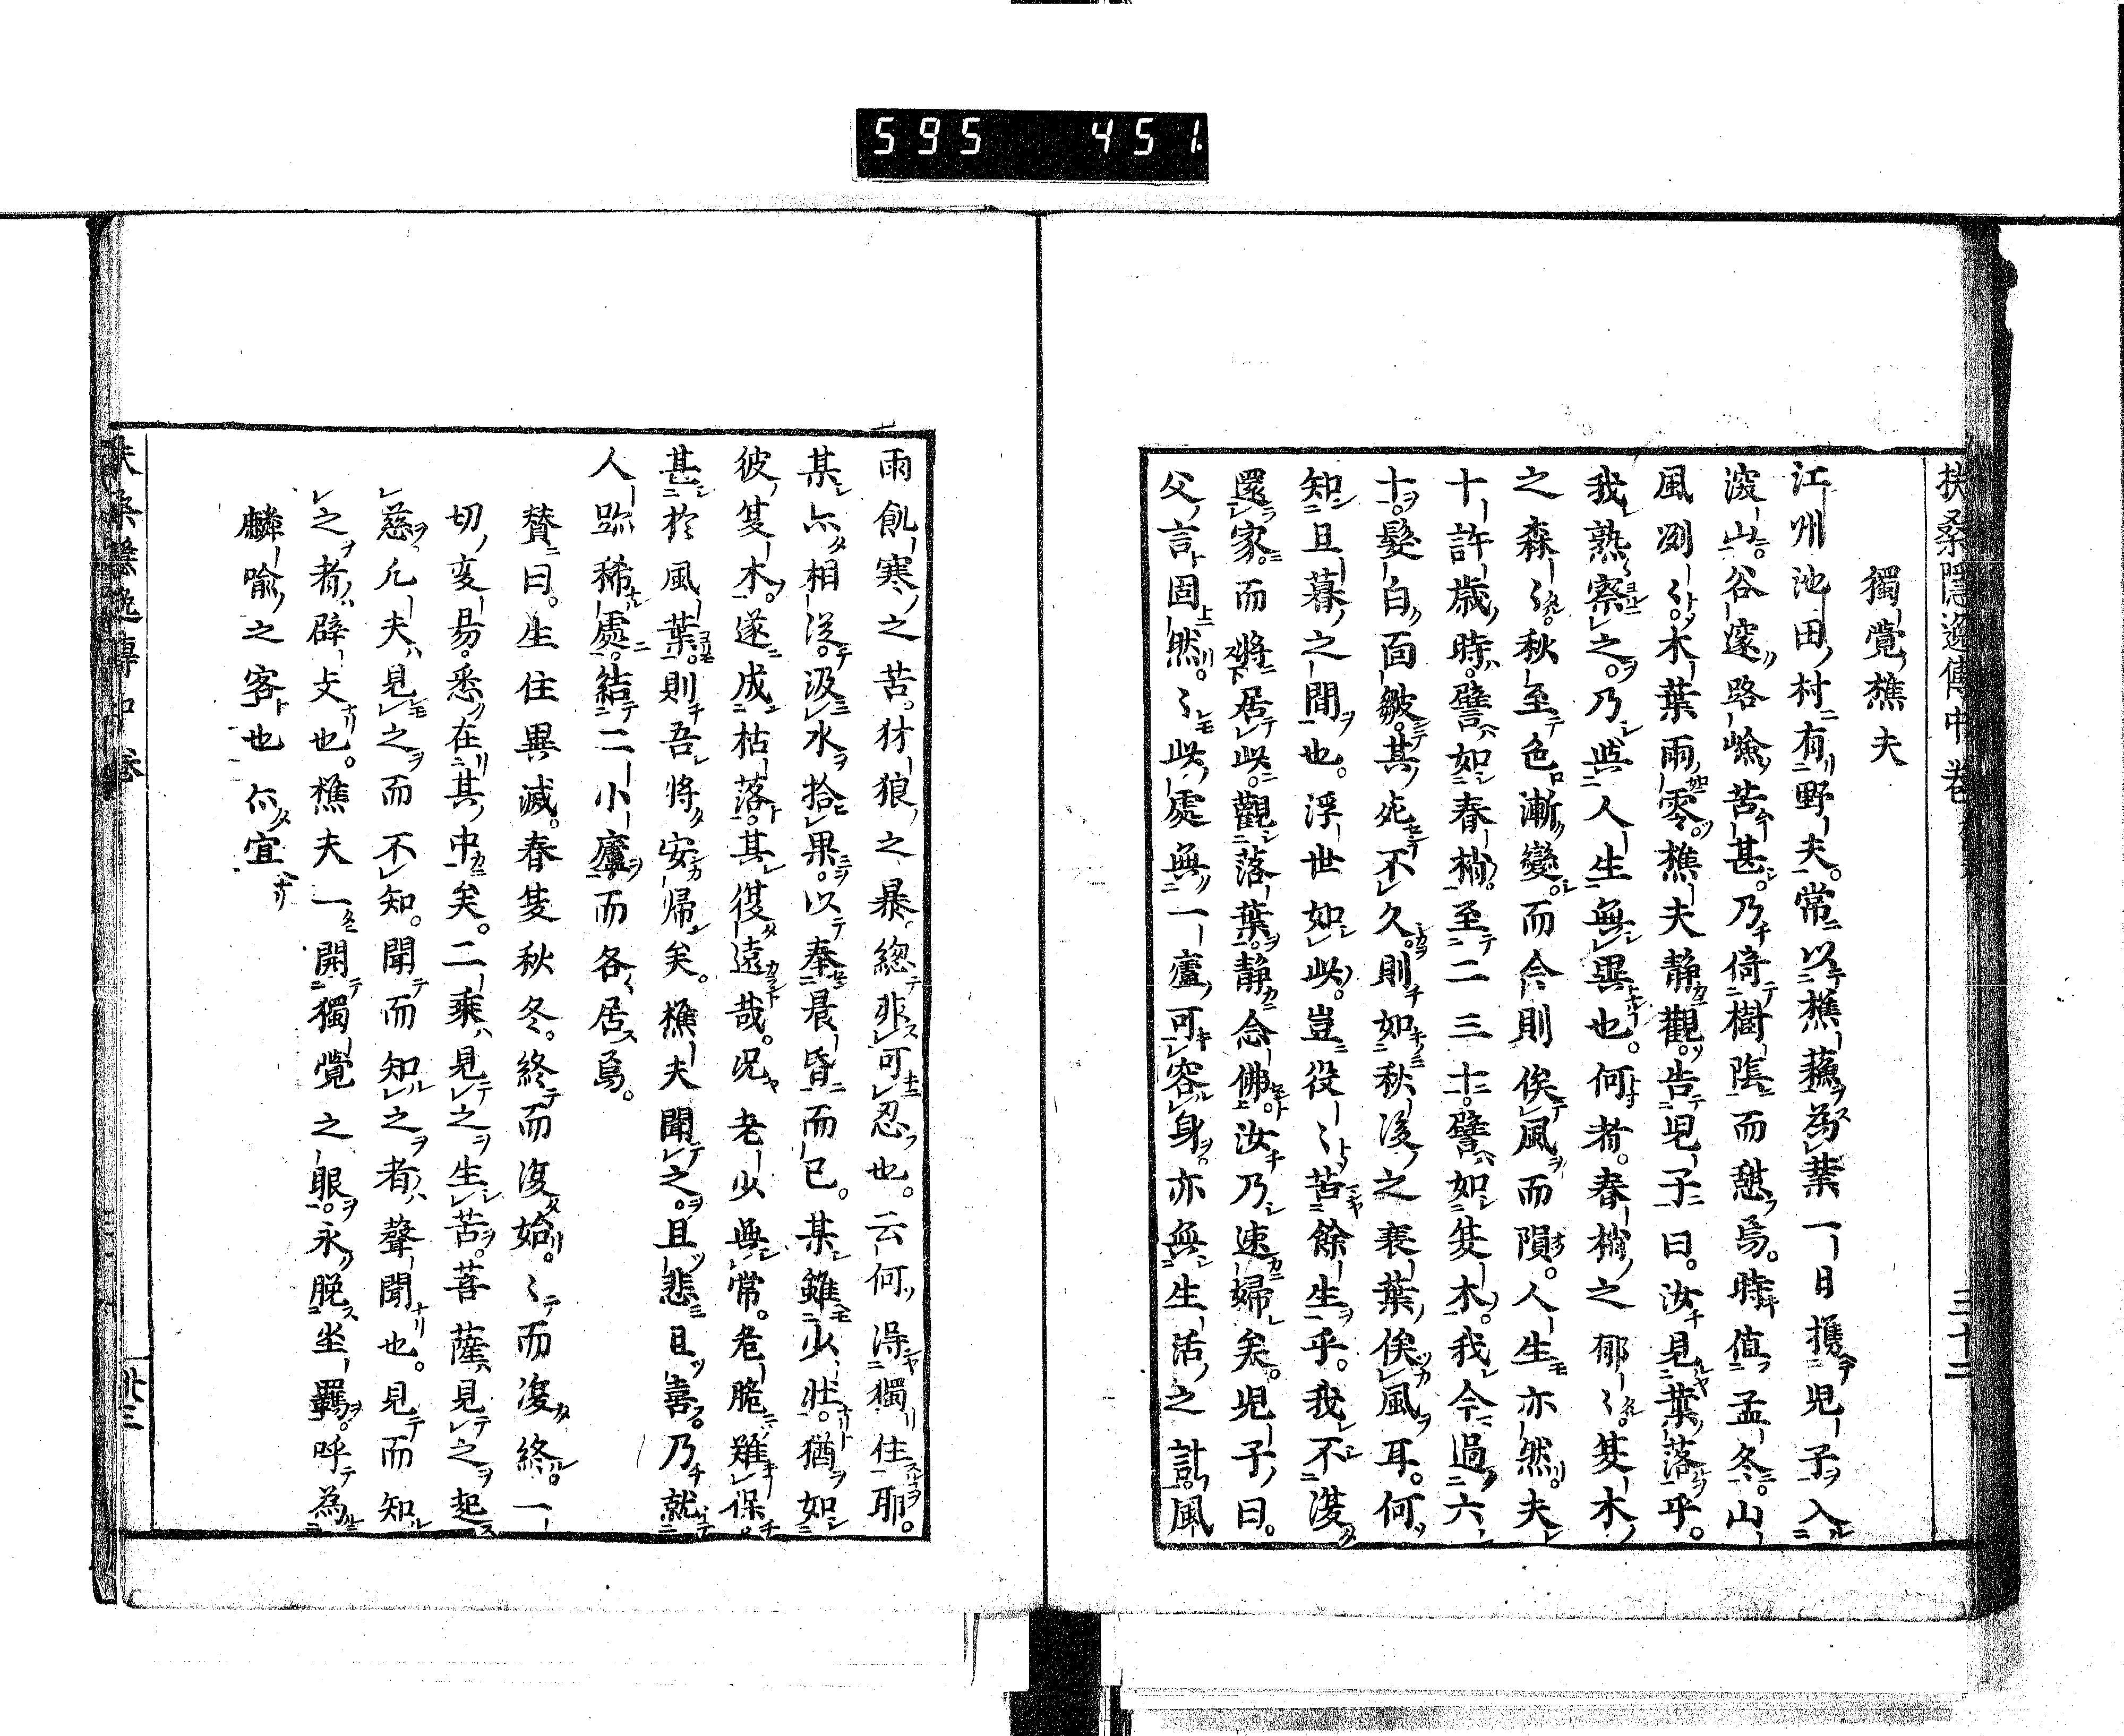 595 451
扶桑隱逸傳中卷
三十二
獨覺樵夫
江州池田村有野夫。常以樵蘓為業一日携兒子入
深山。谷邃路嶮苦甚。乃倚樹陰而憇焉。時値孟冬。山
風冽〻木葉雨零。樵夫静觀。告兒子曰。汝見葉落乎。
我熟察之。乃與人生無異也。何者。春梢之郁〻。夏木
之森〻。秋至色漸變。而今則俟風而隕。人生亦然。夫
十許歳時。譬如春梢。至二三十。譬如夏木。我今過六
十。髮白面皺。其死不久。則如秋後之衰葉俟風耳。何
知旦暮之間也。浮世如此。豈役〻苦餘生乎。我不復
還家。而將居此。觀落葉。静念佛。汝乃速歸矣。兒子曰。
父言固然。〻此處無一廬可容身。亦無生活之計。風
雨飢寒之苦。犲狼之暴。總非可忍也。云何得獨住耶。
某亦相從。汲水拾果。以奉晨昏而已。某雖少壯。猶如
彼夏木。遂成枯落。其復遠哉。况老少無常。危脆難保
甚於風葉。則吾將安歸矣。樵夫聞之。且悲且喜。乃就
人跡稀處。結二小廬而各居焉。
賛曰。生住異滅。春夏秋冬。終而復始。〻而復終。一
切變易。悉在其中矣。二乘見之生苦。菩薩見之起
慈。凡夫見之而不知。聞而知之者聲聞也。見而知
之者辟支也。樵夫一開獨覺之眼。永脱坐羈。呼為
麟喩之客也亦宜
扶桑隱逸傳中卷
卅三